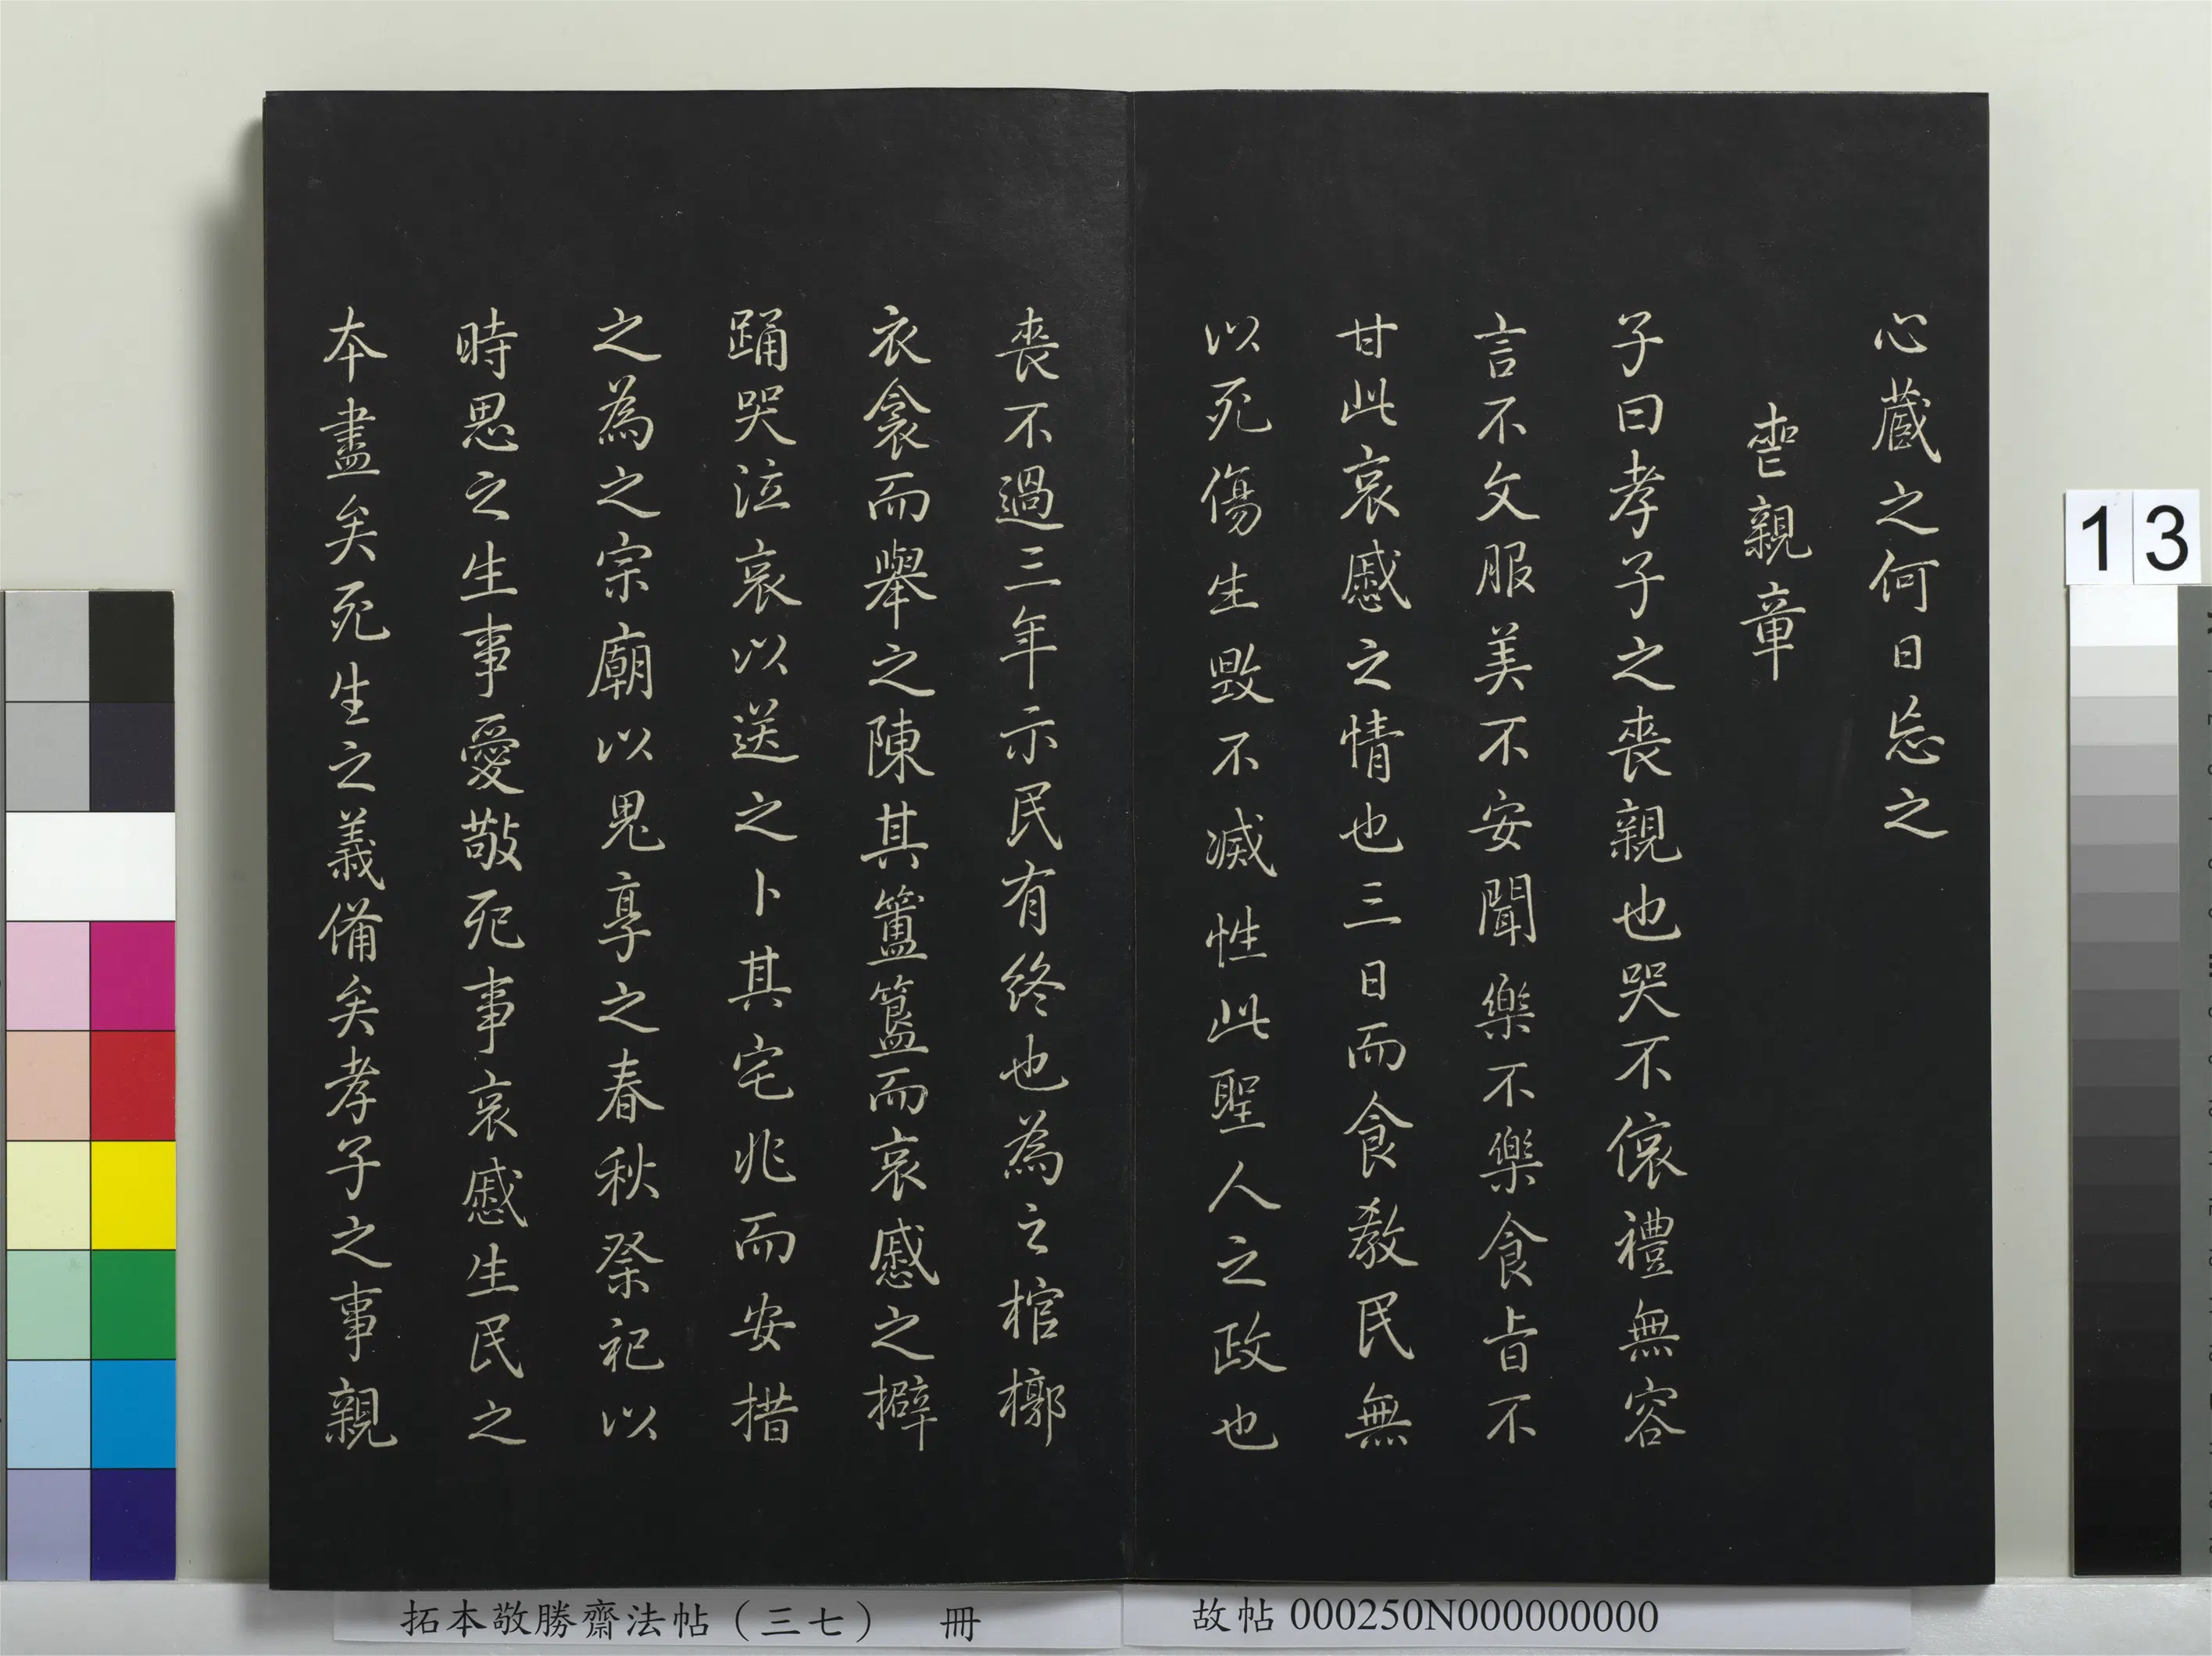 心藏之何日忘之
喪親章
子曰孝子之喪親也哭不偯禮無容
言不文服美不安聞樂不樂食旨不
甘此哀慼之情也三日而食教民無
以死傷生毀不滅性此聖人之政也
喪不過三年示民有終也為之棺槨
衣衾而舉之陳其簠簋而哀慼之擗
踊哭泣哀以送之卜其宅兆而安措
之為之宗廟以鬼享之春秋祭祀以
時思之生事愛敬死事哀慼生民之
本盡矣死生之義備矣孝子之事親
13
拓本敬勝齋法帖（三七） 冊
故帖 000250N000000000